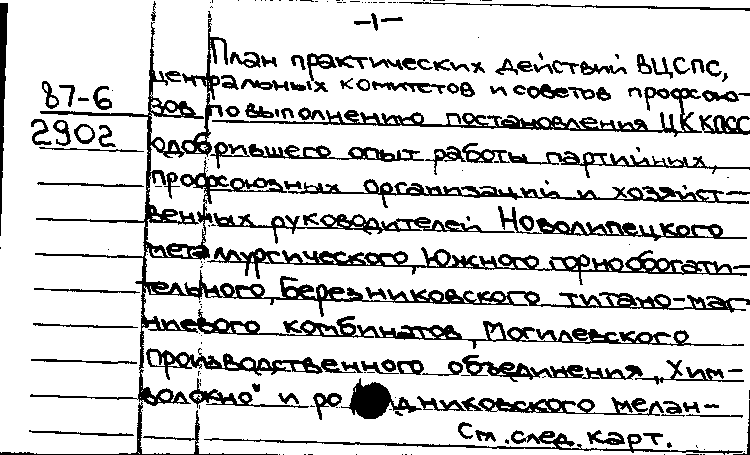 -1-
План практических действий ВЦСПС,
центральных комитетов и советов профсою-
87-6 зов по выполнению постановления ЦК КПСС
2902 одобрившего опыт работы партийных,
профсоюзных организаций и хозяйст-
венных руководителей Новолипецкого
металлургического, Южного горнообогати-
тельного, Березниковского титано-маг-
ниевого комбинатов, Могилевского
производственного объединения „Хим-
волокно" и ро дниковского мелан-
См. след. карт.